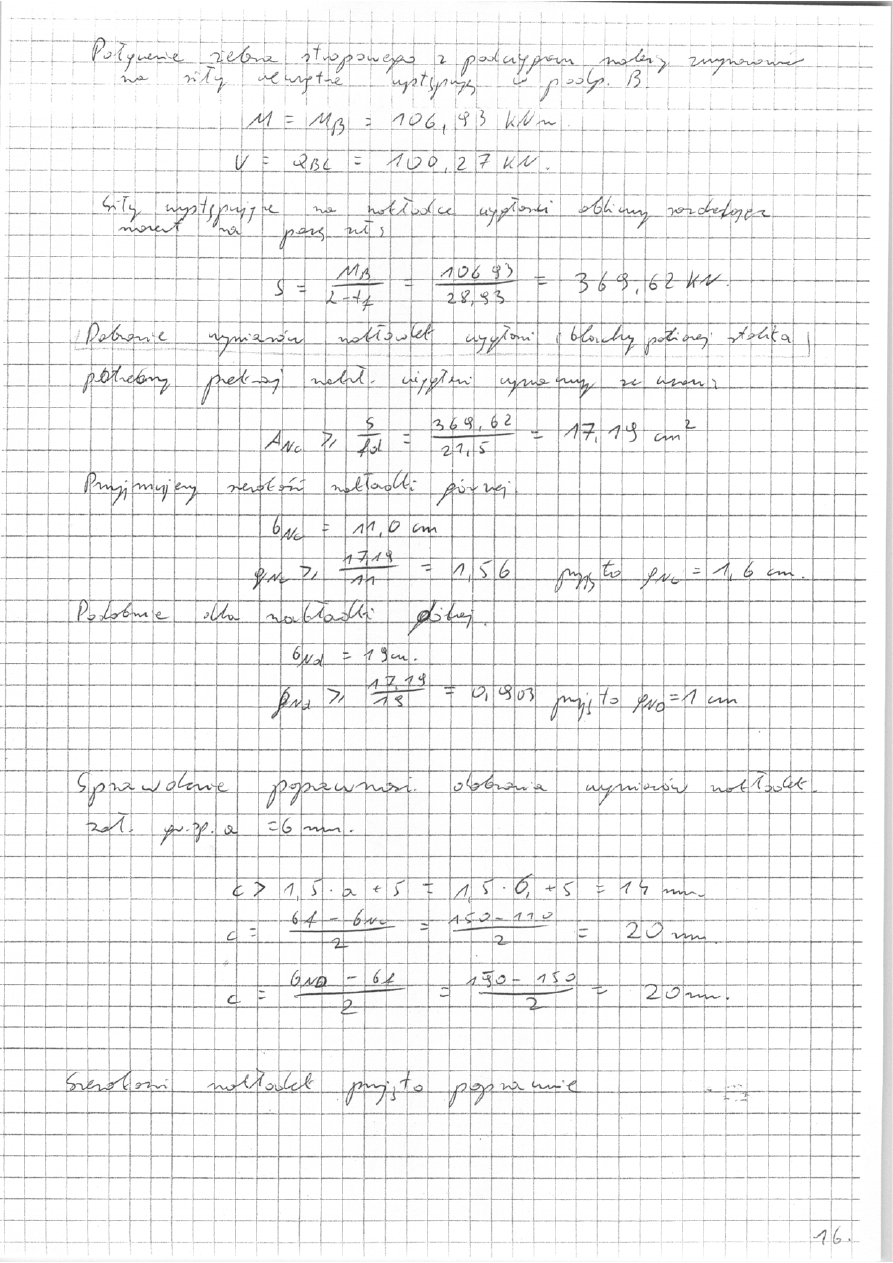 Połączenie żebra stropowego z podciągiem należy zwymiarować
na siły wewnętrzne występujące w podp. B.
M = M_B = 106,93 kNm.
V = Q_BC = 100,27 KN.
Siły występujące na nakładce obliczmy rozkładając
moment na parę sił:
S = M_B / (2-t_f) = 10693 / 28,93 = 369,62 KN.
Dobranie wymiarów nakładek (blachy poziomej stolika)
potrzebny przekrój nakł. wyznaczmy ze wzoru:
A_Nc ≥ S / fd = 369,62 / 21,5 = 17,19 cm²
Przyjmujemy szerokość nakładki górnej.
b_Nc = 11,0 cm
g_Nc ≥ 17,19 / 11 = 1,56 przyjęto g_Nc = 1,6 cm.
Podobnie dla nakładki dolnej.
b_Nd = 19cm.
g_Nd ≥ 17,19 / 19 = 0,903 przyjęto g_ND = 1 cm
Sprawdzenie poprawności dobrania wymiarów nakładek.
zał. gr. sp. a = 6 mm.
c > 1,5 · a + 5 = 1,5 · 6, + 5 = 14 mm.
c = (bf - b_Nc) / 2 = (150 - 110) / 2 = 20 mm.
c = (b_ND - bf) / 2 = (190 - 150) / 2 = 20 mm.
Szerokości nakładek przyjęto poprawnie
16.